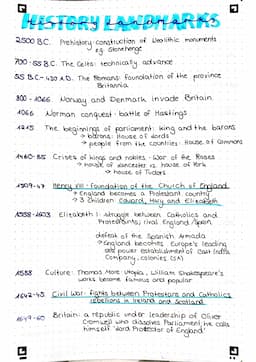 HISTORY LANDMARKS
2500 B.C. Prehistory: construction of Neolithic monuments
eg. Stonehenge
700-55 B.C. The Celts: technically advance
55 B.C-420 A.D. The Romans: foundation of the province
Britannia
800-1066 Norway and Denmark invade Britain
1066 Norman conquest - battle of Hastings
1215 The beginnings of parliament: king and the barons
→ barons: House of Lords
→ people from the countries: House of Commons
1460-85 Crises of kings and nobles - War of the Roses
→ House of Lancaster vs. House of York
→ House of Tudors
1509-47 Henry VIII - foundation of the Church of England
→ England becomes a Protestant country
→ 3 children Edward, Mary and Elizabeth
1558-1603 Elizabeth I: struggle between Catholics and
Protestants; rival England/Spain
defeat of the Spanish Armada
→ England becomes Europe's leading
sea power establishment of East India
Company; colonies (SA)
1588 Culture: Thomas More: Utopia, William Shakespeare's
works became famous and popular
1642-49 Civil War: fights between Protestans and Catholics
rebellions in Ireland and Scotland
1649-60 Britain: a republic under leadership of Oliver
Cromwell who dissolves Parliament, he calls
himself 'Lord Protector of England'